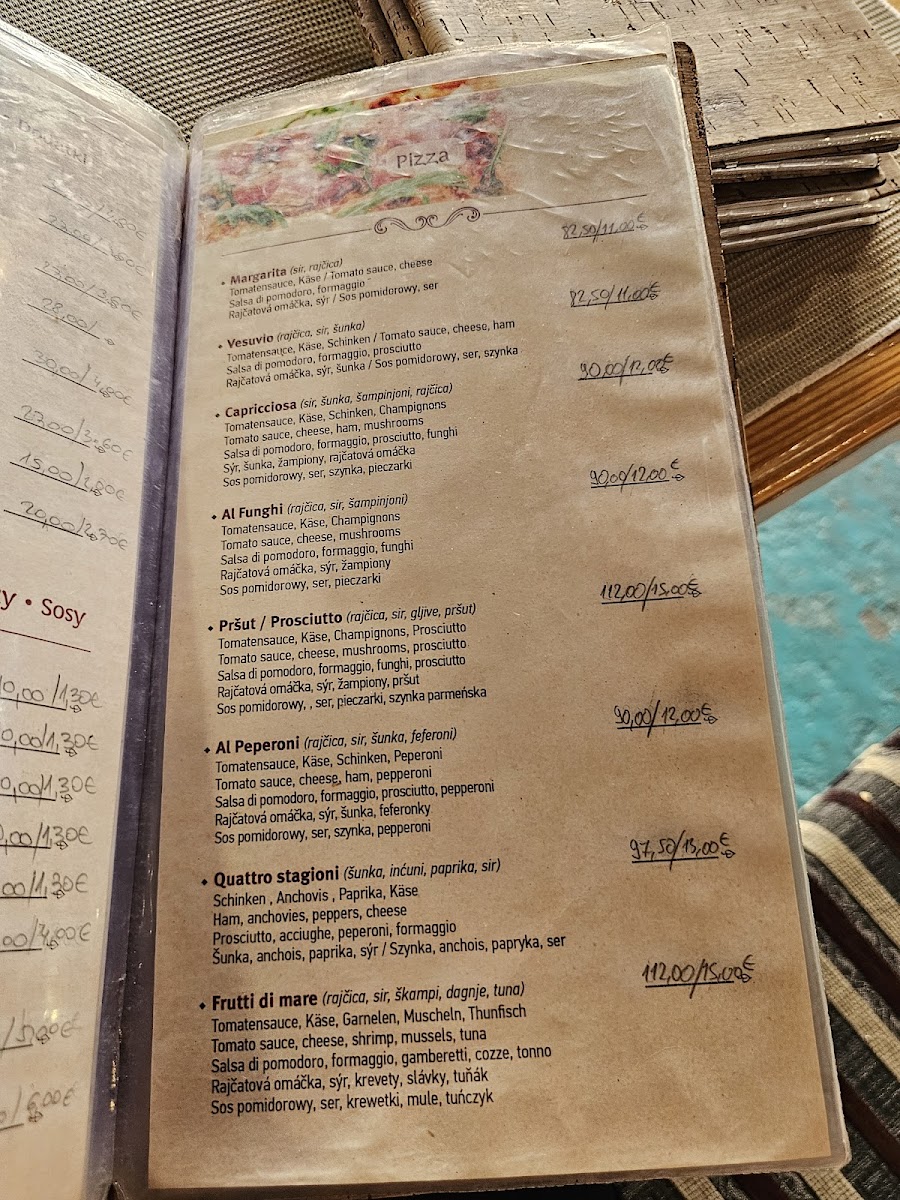 23,00/3,60€
28,00/
30,00/4,80€
27,00/3,60€
15,00/2,80€
20,00/2,70€
• Sosy
/1,30€
0,00/1,30€
0,00/1,30€
,00/1,30€
00/1,30€
00/4,00€
/6,00€
Pizza
82,50/11,00€
• Margarita (sir, rajčica)
Tomatensauce, Käse / Tomato sauce, cheese
Salsa di pomodoro, formaggio
Rajčatová omáčka, sýr / Sos pomidorowy, ser
82,50/11,00€
• Vesuvio (rajčica, sir, šunka)
Tomatensauce, Käse, Schinken / Tomato sauce, cheese, ham
Salsa di pomodoro, formaggio, prosciutto
Rajčatová omáčka, sýr, šunka / Sos pomidorowy, ser, szynka
90,00/12,00€
• Capricciosa (sir, šunka, šampinjoni, rajčica)
Tomatensauce, Käse, Schinken, Champignons
Tomato sauce, cheese, ham, mushrooms
Salsa di pomodoro, formaggio, prosciutto, funghi
Sýr, šunka, žampiony, rajčatová omáčka
Sos pomidorowy, ser, szynka, pieczarki
90,00/12,00€
• Al Funghi (rajčica, sir, šampinjoni)
Tomatensauce, Käse, Champignons
Tomato sauce, cheese, mushrooms
Salsa di pomodoro, formaggio, funghi
Rajčatová omáčka, sýr, žampiony
Sos pomidorowy, ser, pieczarki
112,00/15,00€
• Pršut / Prosciutto (rajčica, sir, gljive, pršut)
Tomatensauce, Käse, Champignons, Prosciutto
Tomato sauce, cheese, mushrooms, prosciutto
Salsa di pomodoro, formaggio, funghi, prosciutto
Rajčatová omáčka, sýr, žampiony, pršut
Sos pomidorowy, , ser, pieczarki, szynka parmeńska
90,00/12,00€
• Al Peperoni (rajčica, sir, šunka, feferoni)
Tomatensauce, Käse, Schinken, Peperoni
Tomato sauce, cheese, ham, pepperoni
Salsa di pomodoro, formaggio, prosciutto, pepperoni
Rajčatová omáčka, sýr, šunka, feferonky
Sos pomidorowy, ser, szynka, pepperoni
97,50/13,00€
• Quattro stagioni (šunka, inćuni, paprika, sir)
Schinken , Anchovis , Paprika, Käse
Ham, anchovies, peppers, cheese
Prosciutto, acciughe, peperoni, formaggio
Šunka, anchois, paprika, sýr / Szynka, anchois, papryka, ser
112,00/15,00€
• Frutti di mare (rajčica, sir, škampi, dagnje, tuna)
Tomatensauce, Käse, Garnelen, Muscheln, Thunfisch
Tomato sauce, cheese, shrimp, mussels, tuna
Salsa di pomodoro, formaggio, gamberetti, cozze, tonno
Rajčatová omáčka, sýr, krevety, slávky, tuňák
Sos pomidorowy, ser, krewetki, mule, tuńczyk